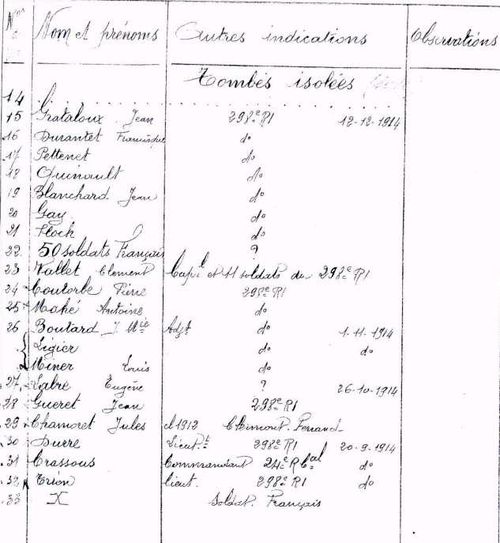 Nos Nom et prénoms Autres indications Observations
Tombes isolées
14
15 Grataloux Jean 298e RI 12-12-1914
16 Durantet Francisque do
17 Pettenet do
18 Quinault do
19 Blanchard Jean do
20 Gay do
21 Floch do
22 50 soldats Français ?
23 Vallet Clément Capl et 11 soldats du 298e RI
24 Coutorbe Pierre 298e RI
25 Mahé Antoine do
26 Boutard J Mie Adjt do 1.11.1914
Ligier do do
Miner Louis do
27 Labre Eugène ? 26-10-1914
28 Gueret Jean 298e RI
29 Chamoret Jules cl 1912 Clermont-Ferrand
30 Durre Lieutt 298e RI 20-9-1914
31 Crassous Commandant 24e R Cal do
32 Trion lieut. 298e RI do
33 X Soldat Français